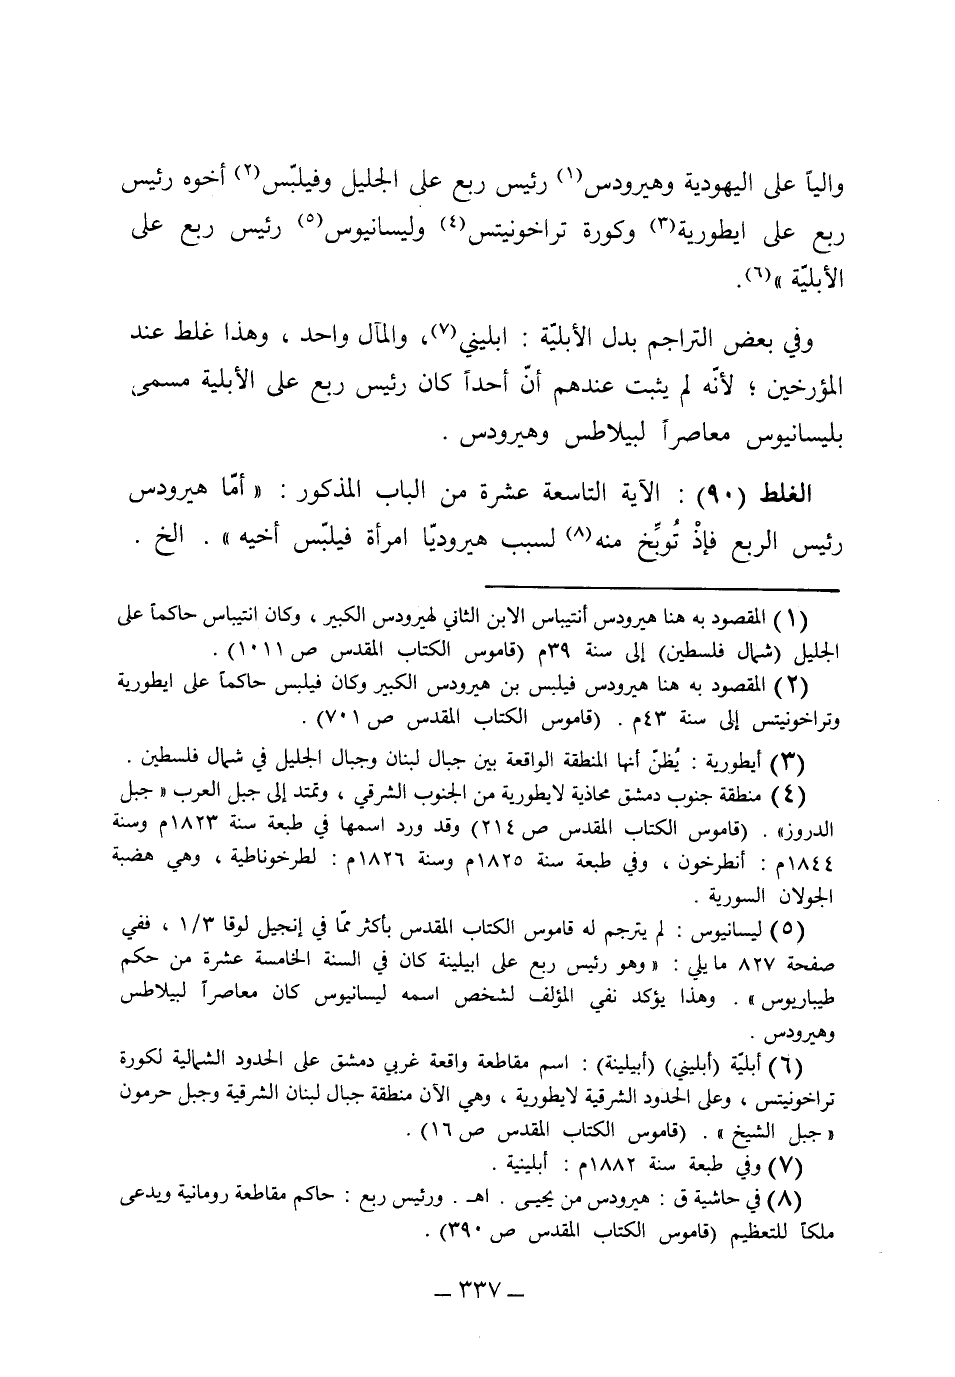 والياً على اليهودية وهيرودس(١) رئيس ربع على الجليل وفيلبّس(٢) أخوه رئيس
ربع على ايطورية(٣) وكورة تراخونيتس(٤) وليسانيوس(٥) رئيس ربع على
الأبليّة »(٦).
وفي بعض التراجم بدل الأبليّة : ابليني(٧)، والمآل واحد ، وهذا غلط عند
المؤرخين ؛ لأنّه لم يثبت عندهم أنّ أحداً كان رئيس ربع على الأبلية مسمى
بليسانيوس معاصراً لبيلاطس وهيرودس .
الغلط (٩٠) : الآية التاسعة عشرة من الباب المذكور : « أمّا هيرودس
رئيس الربع فإذْ تُوبِّخ منه(٨) لسبب هيروديّا امرأة فيلبّس أخيه » . الخ .
(١) المقصود به هنا هيرودس أنتيباس الابن الثاني لهيرودس الكبير ، وكان انتيباس حاكماً على
الجليل (شمال فلسطين) إلى سنة ٣٩م (قاموس الكتاب المقدس ص ١٠١١) .
(٢) المقصود به هنا هيرودس فيلبس بن هيرودس الكبير وكان فيلبس حاكماً على ايطورية
وتراخونيتس إلى سنة ٤٣م . (قاموس الكتاب المقدس ص ٧٠١) .
(٣) أيطورية : يُظنّ أنها المنطقة الواقعة بين جبال لبنان وجبال الجليل في شمال فلسطين .
(٤) منطقة جنوب دمشق محاذية لايطورية من الجنوب الشرقي ، وتمتد إلى جبل العرب « جبل
الدروز» . (قاموس الكتاب المقدس ص ٢١٤) وقد ورد اسمها في طبعة سنة ١٨٢٣م وسنة
١٨٤٤م : أنطرخون ، وفي طبعة سنة ١٨٢٥م وسنة ١٨٢٦م : لطرخوناطية ، وهي هضبة
الجولان السورية .
(٥) ليسانيوس : لم يترجم له قاموس الكتاب المقدس بأكثر ممّا في إنجيل لوقا ١/٣ ، ففي
صفحة ٨٢٧ ما يلي : « وهو رئيس ربع على ابيلينة كان في السنة الخامسة عشرة من حكم
طيباريوس » . وهذا يؤكد نفي المؤلف لشخص اسمه ليسانيوس كان معاصراً لبيلاطس
وهيرودس .
(٦) أبليّة (أبليني) (أبيلينة) : اسم مقاطعة واقعة غربي دمشق على الحدود الشمالية لكورة
تراخونيتس ، وعلى الحدود الشرقية لايطورية ، وهي الآن منطقة جبال لبنان الشرقية وجبل حرمون
« جبل الشيخ » . (قاموس الكتاب المقدس ص ١٦) .
(٧) وفي طبعة سنة ١٨٨٢م : أبلينية .
(٨) في حاشية ق : هيرودس من يحيى . اهـ . ورئيس ربع : حاكم مقاطعة رومانية ويدعى
ملكاً للتعظيم (قاموس الكتاب المقدس ص ٣٩٠) .
ـ ٣٣٧ ـ